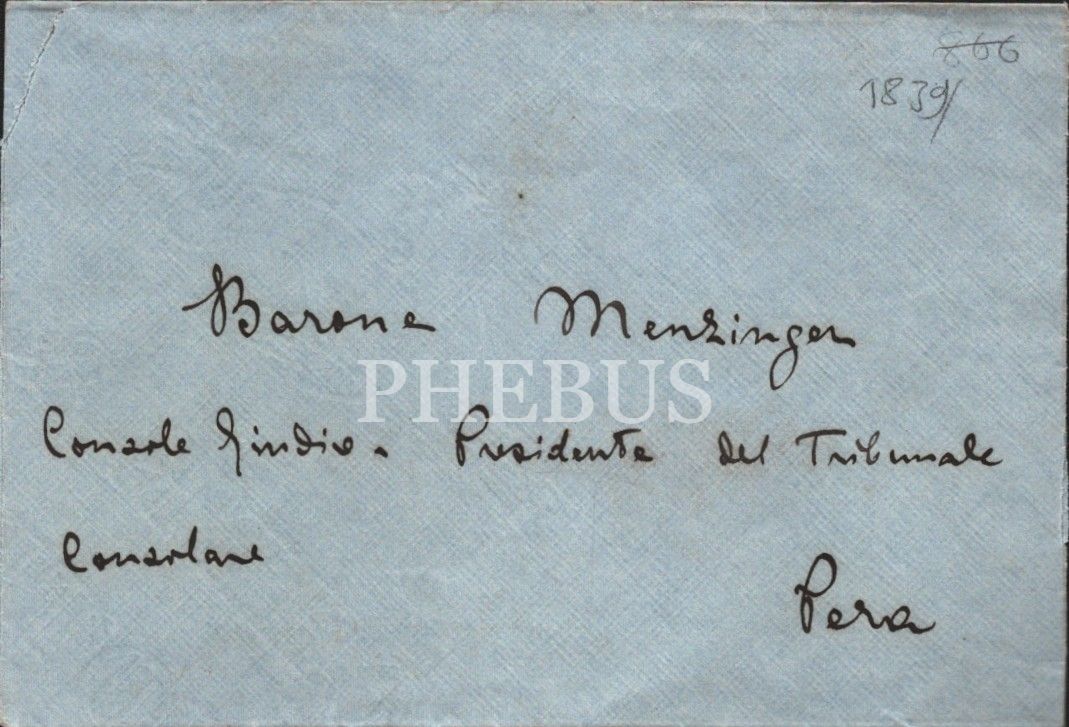 866
1839/
Barone Menzinger
PHEBUS
Console Giudice. Presidente del Tribunale
Consolare
Pera